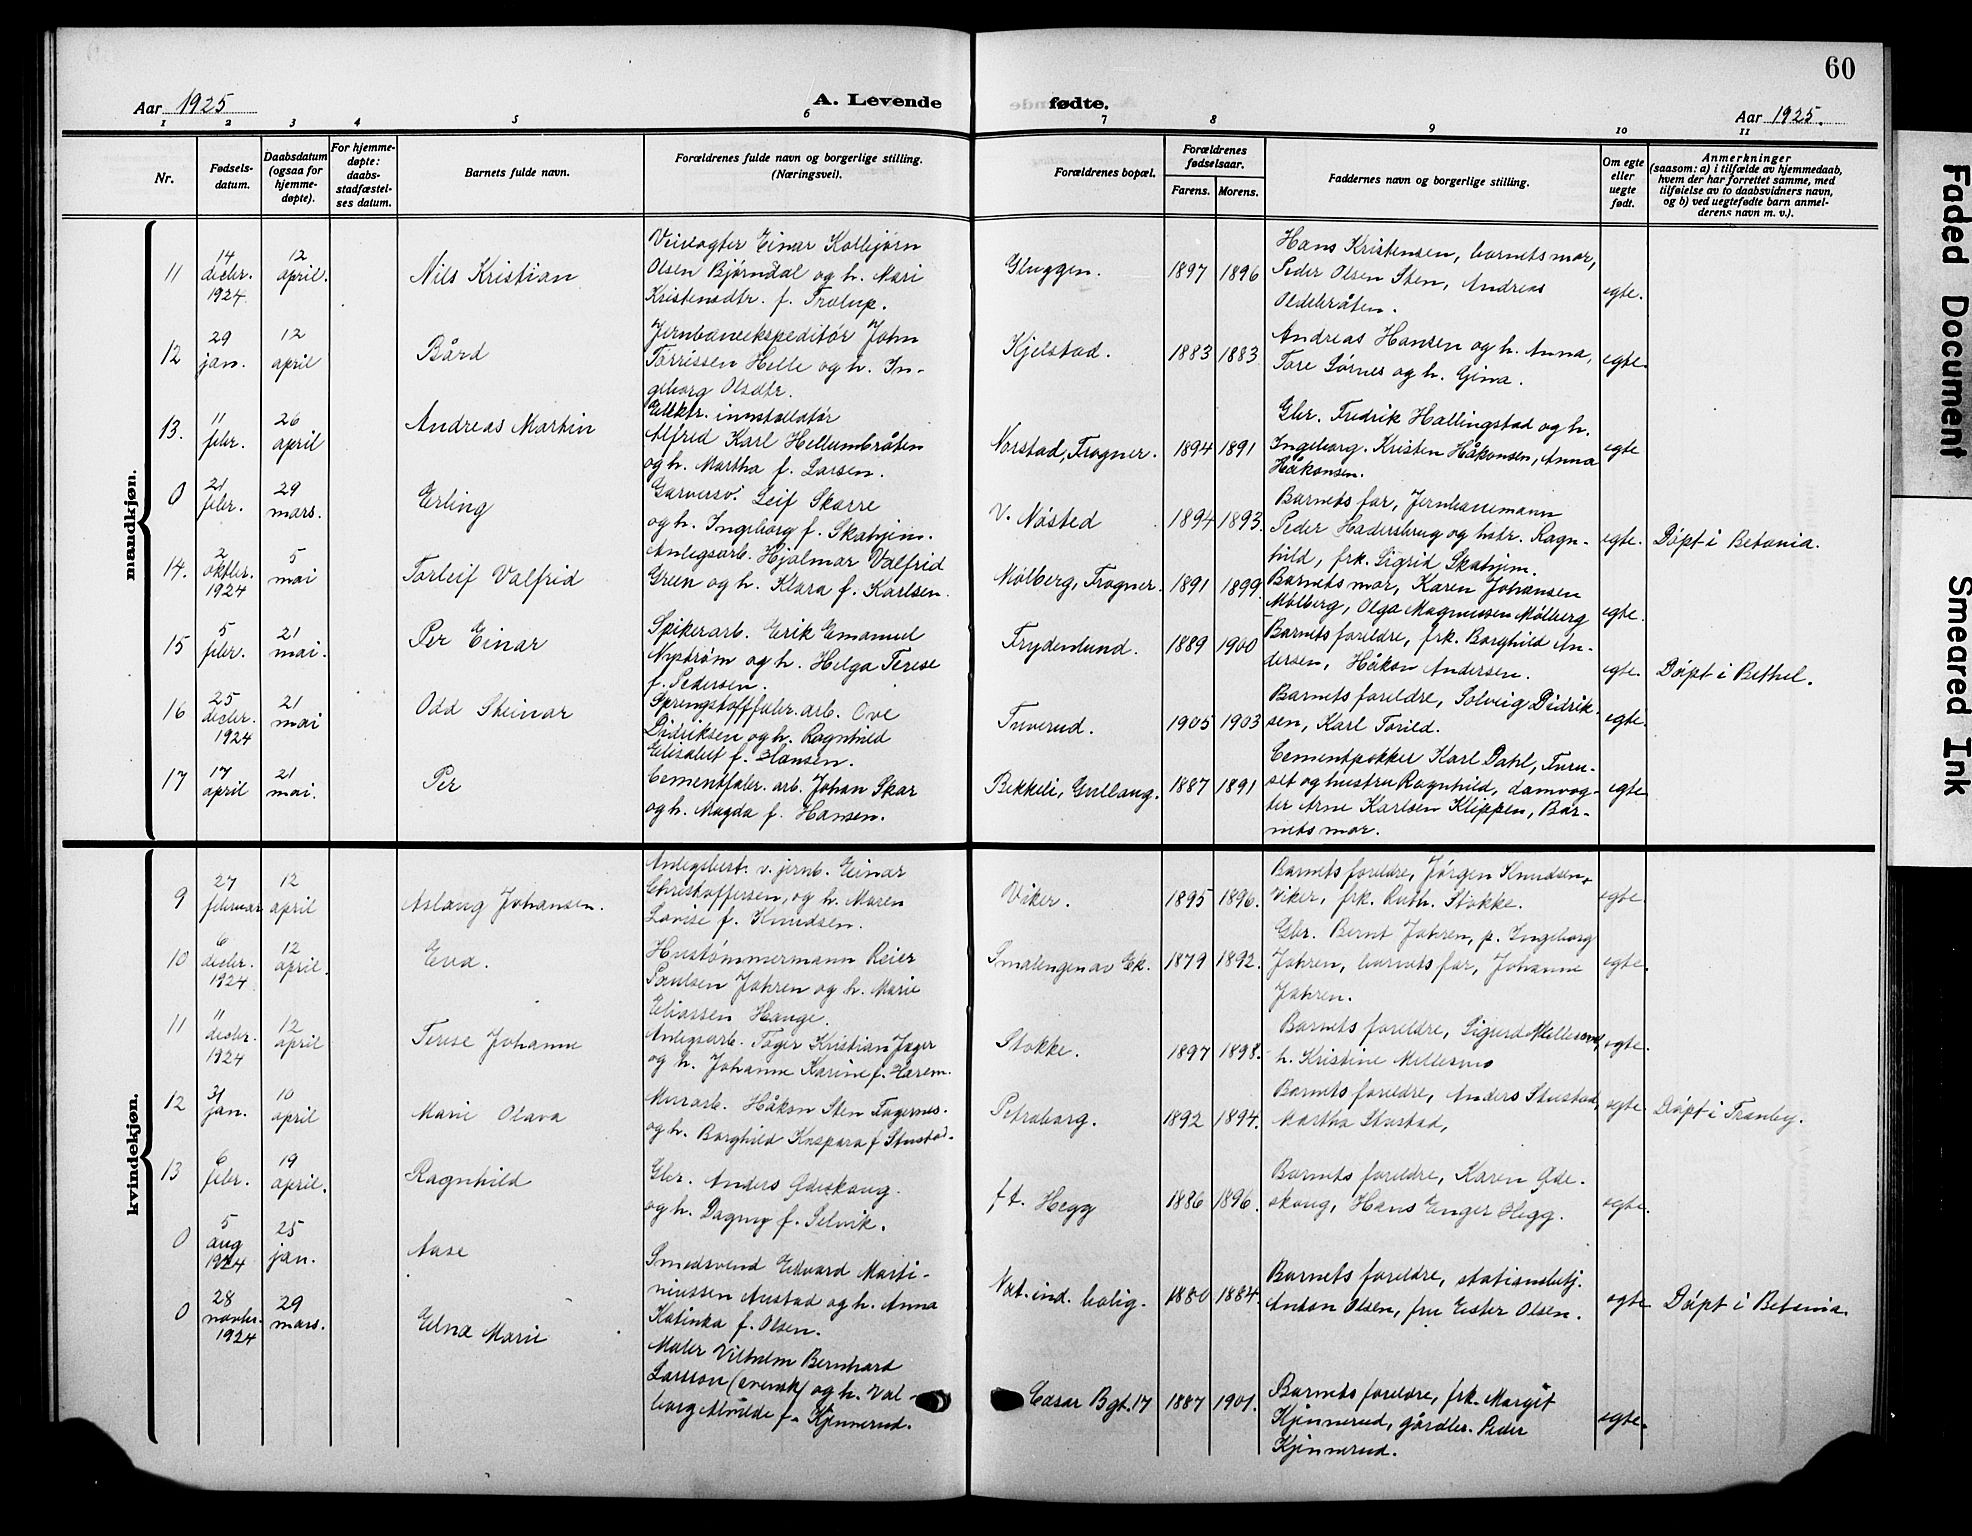 60
Aar 1925
A. Levende
fødte.
Aar 1925.
1 2 3 4 5 6 7 8 9 10 11
Nr.
Fødsels-
datum.
Daabsdatum
(ogsaa for
hjemme-
døpte).
For hjemme-
døpte:
daabs-
stadfæstel-
ses datum.
Barnets fulde navn.
Forældrenes fulde navn og borgerlige stilling.
(Næringsvei).
Forældrenes bopæl.
Forældrenes
fødselsaar.
Farens. Morens.
Faddernes navn og borgerlige stilling.
Om egte
eller
uegte
født.
Anmerkninger
(saasom: a) i tilfælde av hjemmedaab,
hvem der har forrettet samme, med
tilføielse av to daabsvidners navn,
og b) ved uegtefødte barn anmel-
derens navn m. v.).
mandkjøn.
11
14
decbr.
1924
12
april.
Nils Kristian
Veivogter Einar Kolbjørn
Olsen Bjørndal og h. Mari
Kristensdtr. f. Trølup.
Gluggen.
1897 1896
Hans Kristensen, barnets mor,
Peder Olsen Sten, Andreas
Oldebråten.
egte.
12
29
jan.
12
april
Bård
Jernbaneekspeditør John
Torrissen Helle og h. In-
geborg Olsdtr.
Kjelstad.
1883 1883
Andreas Hansen og h. Anna,
Tore Sørnes og h. Gina.
egte.
13.
11
febr.
26
april
Andreas Martin
Elektr. innstallatør
Alfred Karl Hellumbråten
og h. Martha f. Larsen.
Norstad, Frogner.
1894 1891
Gbr. Fredrik Hallingstad og h.
Ingeborg. Kristen Håkonsen, Anna
Håkonsen.
egte
0
21
febr.
29
mars.
Erling
Garversv. Leif Skarre
og h. Ingeborg f. Skahjem.
V. Nøsted
1894 1893.
Barnets far, Jernbanemann
Peder Hadersbrug og hstr. Ragn-
hild, frk. Sigrid Skahjem.
egte.
Døpt i Betania.
14.
2
oktbr.
1924
5
mai
Torleif Valfrid
Anlegsarb. Hjalmar Valfrid
Green og h. Klara f. Karlsen.
Mølberg, Frogner.
1891 1899.
Barnets mor, Karen Johansen
Mølberg, Olga Magnussen Mølberg
egte.
15
5
febr.
21
mai.
Per Einar
Spikerarb. Erik Emanuel
Nystrøm og h. Helga Terese
f. Pedersen.
Frydenlund.
1889 1900
Barnets foreldre, frk. Borghild An-
dersen, Håkon Andersen.
egte.
Døpt i Bethel.
16
25
decbr.
1924
21
mai
Odd Steinar
Sprengstoffabr. arb. Ove
Didriksen og h. Ragnhild
Elisabet f. Hansen.
Tuverud.
1905 1903
Barnets foreldre, Solveig Didrik-
sen, Karl Torild.
egte.
17
17
april
21
mai.
Per
Cementfabr. arb. Johan Skar
og h. Magda f. Hansen.
Bekkeli, Gullaug.
1887 1891
Cementpakker Karl Dahl, Turu-
set og hustru Ragnhild, damvog-
ter Arne Karlsen Klippen, Bar-
nets mor.
egte
kvindekjøn.
9
27
februar
12
april
Aslaug Johansen.
Anlegsbest. v. jernb. Einar
Christoffersen, og h. Maren
Lovise f. Knudsen.
Viker.
1895 1896.
Barnets foreldre, Jørgen Knudsen,
Viker, frk. Ruth. Stokke.
egte.
10
6
decbr.
1924
12
april.
Eva.
Hustømmermann Reier
Poulsen Jahren og h. Marie
Eliassen Hauge.
Smalengen av Ek.
1879 1892.
Gbr. Bernt Jahren, p. Ingeborg
Jahren, barnets far, Johanne
Jahren.
egte.
11
11
decbr.
1924
12
april
Terese Johanne
Anlegsarb. Tager Kristian Jæger
og h. Johanne Karine f. Harem.
Stokke.
1897 1898.
Barnets foreldre, Sigurd Millesmo,
h. Kristine Millesmo
egte.
12
31
jan.
10
april
Marie Olava
Murarb. Håkon Sten Fagernes.
og h. Borghild Kaspara f. Stustad.
Petraborg.
1892 1894.
Barnets foreldre, Anders Stustad,
Martha Stustad,
egte.
Døpt i Tranby.
13
6
febr.
19
april.
Ragnhild
Gbr. Anders Ødeskaug.
og h. Dagny f. Selvik.
ft. Hegg
1886 1896.
Barnets foreldre, Karen Øde-
skaug, Hans Enger Hegg.
egte.
0
5
aug
1924
25
jan.
Aase
Smedsvend Edvard Marti-
niussen Austad og h. Anna
Katinka f. Olsen.
Nat. ind. bolig.
1880 1884.
Barnets foreldre, stationsbetj.
Anton Olsen, fru Ester Olsen.
egte
Døpt i Betania.
0
28
novbr.
1924
29
mars.
Edna Marie
Maler Vilhelm Bernhard
Larsson (svensk) og h. Val-
borg Alvilde f. Kjinnerud.
Cæsar Bgt. 17
1887 1901.
Barnets foreldre, frk. Margit
Kjinnerud, gårdbr. Peder
Kjinnerud.
egte.
Faded Document
Smeared Ink